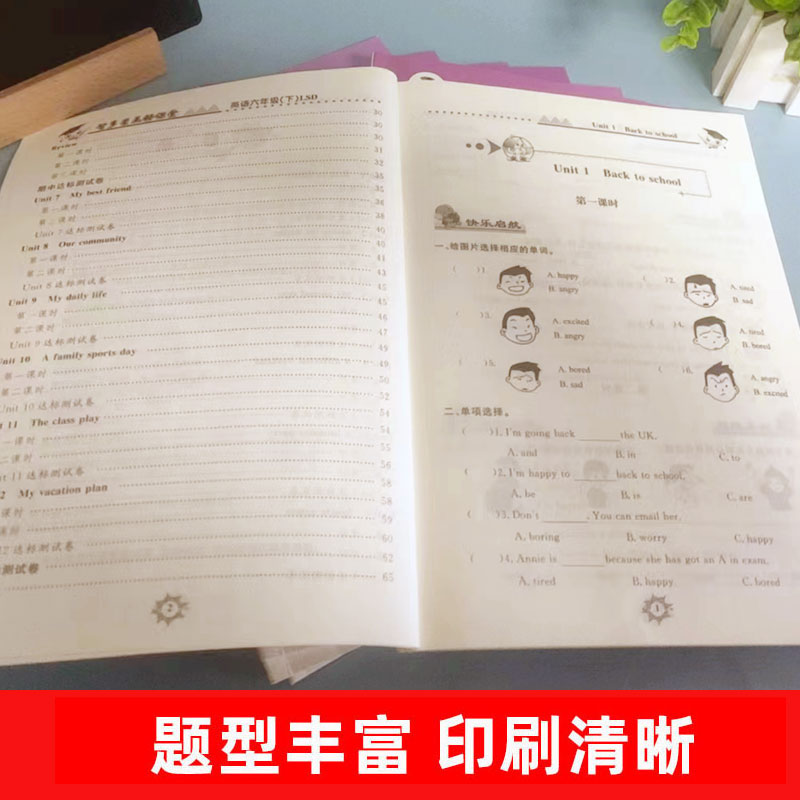 英语六年级(下)LSD
Review
第一课时 30
第二课时 31
第三课时 32
期中达标测试卷
Unit 7 My best friend 35
第一课时 35
第二课时 38
Unit 7达标测试卷 40
Unit 8 Our community 40
第一课时
第二课时
Unit 8达标测试卷 45
Unit 9 My daily life 45
第一课时 45
第二课时 47
Unit 9达标测试卷
Unit 10 A family sports day
第一课时
第二课时 52
Unit 10达标测试卷 54
11 The class play 54
一课时
二课时
11达标测试卷
2 My vacation plan 58
课时 59
课时 60
2达标测试卷 62
测试卷 65
2
Unit 1 Back to school
Unit 1 Back to school
第一课时
快乐启航
一、给图片选择相应的单词。
( )1. A. happy B. angry
( )2. A. tired B. sad
( )3. A. excited B. angry
( )4. A. tired B. bored
( )5. A. bored B. sad
( )6. A. angry B. excited
二、单项选择。
( )1. I'm going back ______ the UK.
A. and B. in C. to
( )2. I'm happy to ______ back to school.
A. be B. is C. are
( )3. Don't ______. You can email her.
A. boring B. worry C. happy
( )4. Annie is ______ because she has got an A in exam.
A. tired B. happy C. bored
1
题型丰富 印刷清晰